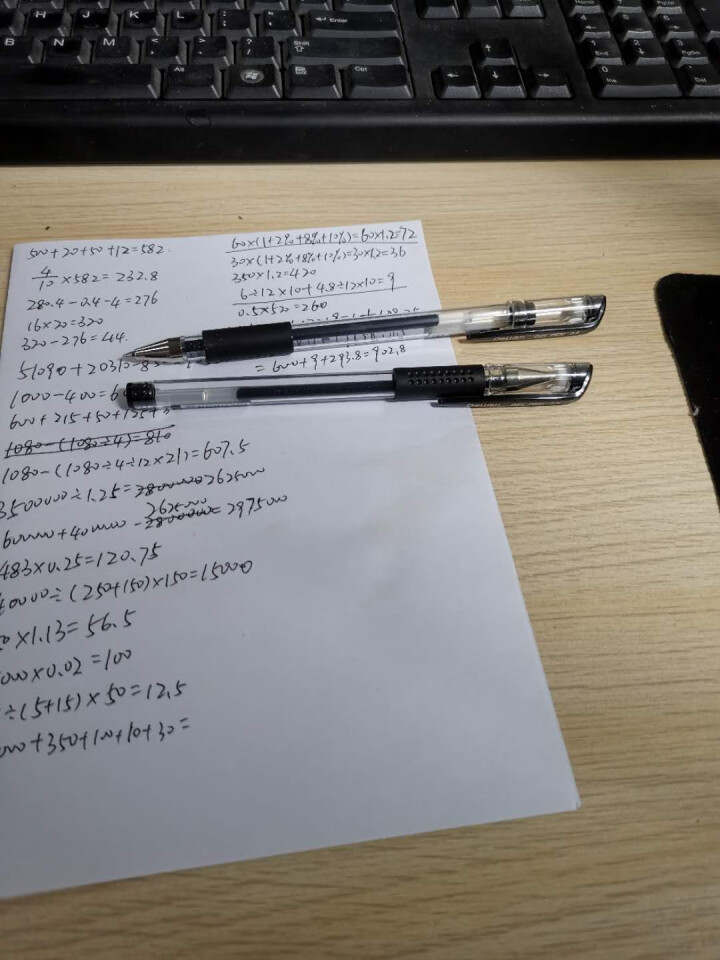 H J K L Enter
B N M < > ? Shift
Alt Ctrl
4 5 6
1 End 2 3 PgDn
0 Ins Del
500+20+50+12=582
4/10×582=232.8
280.4-0.4-4=276
16×20=320
320-276=44
51090+20310-8
1000-400=6
600+215+50+125+
1080-(1080÷4)=810
1080-(1080÷4÷12×21)=607.5
3500000÷1.25=2800000 2625000
2625000
600000+400000-2800000=2975000
483×0.25=120.75
÷(250+150)×150=15000
×1.13=56.5
000×0.02=100
÷(5+15)×50=12.5
+350+100+10+30=
60×(1+2%+8%+10%)=60×1.2=72
30×(1+2%+8%+10%)=30×1.2=36
350×1.2=420
6÷12×10+4.8÷12×10=9
0.5×520=260
=600+9+293.8=902.8